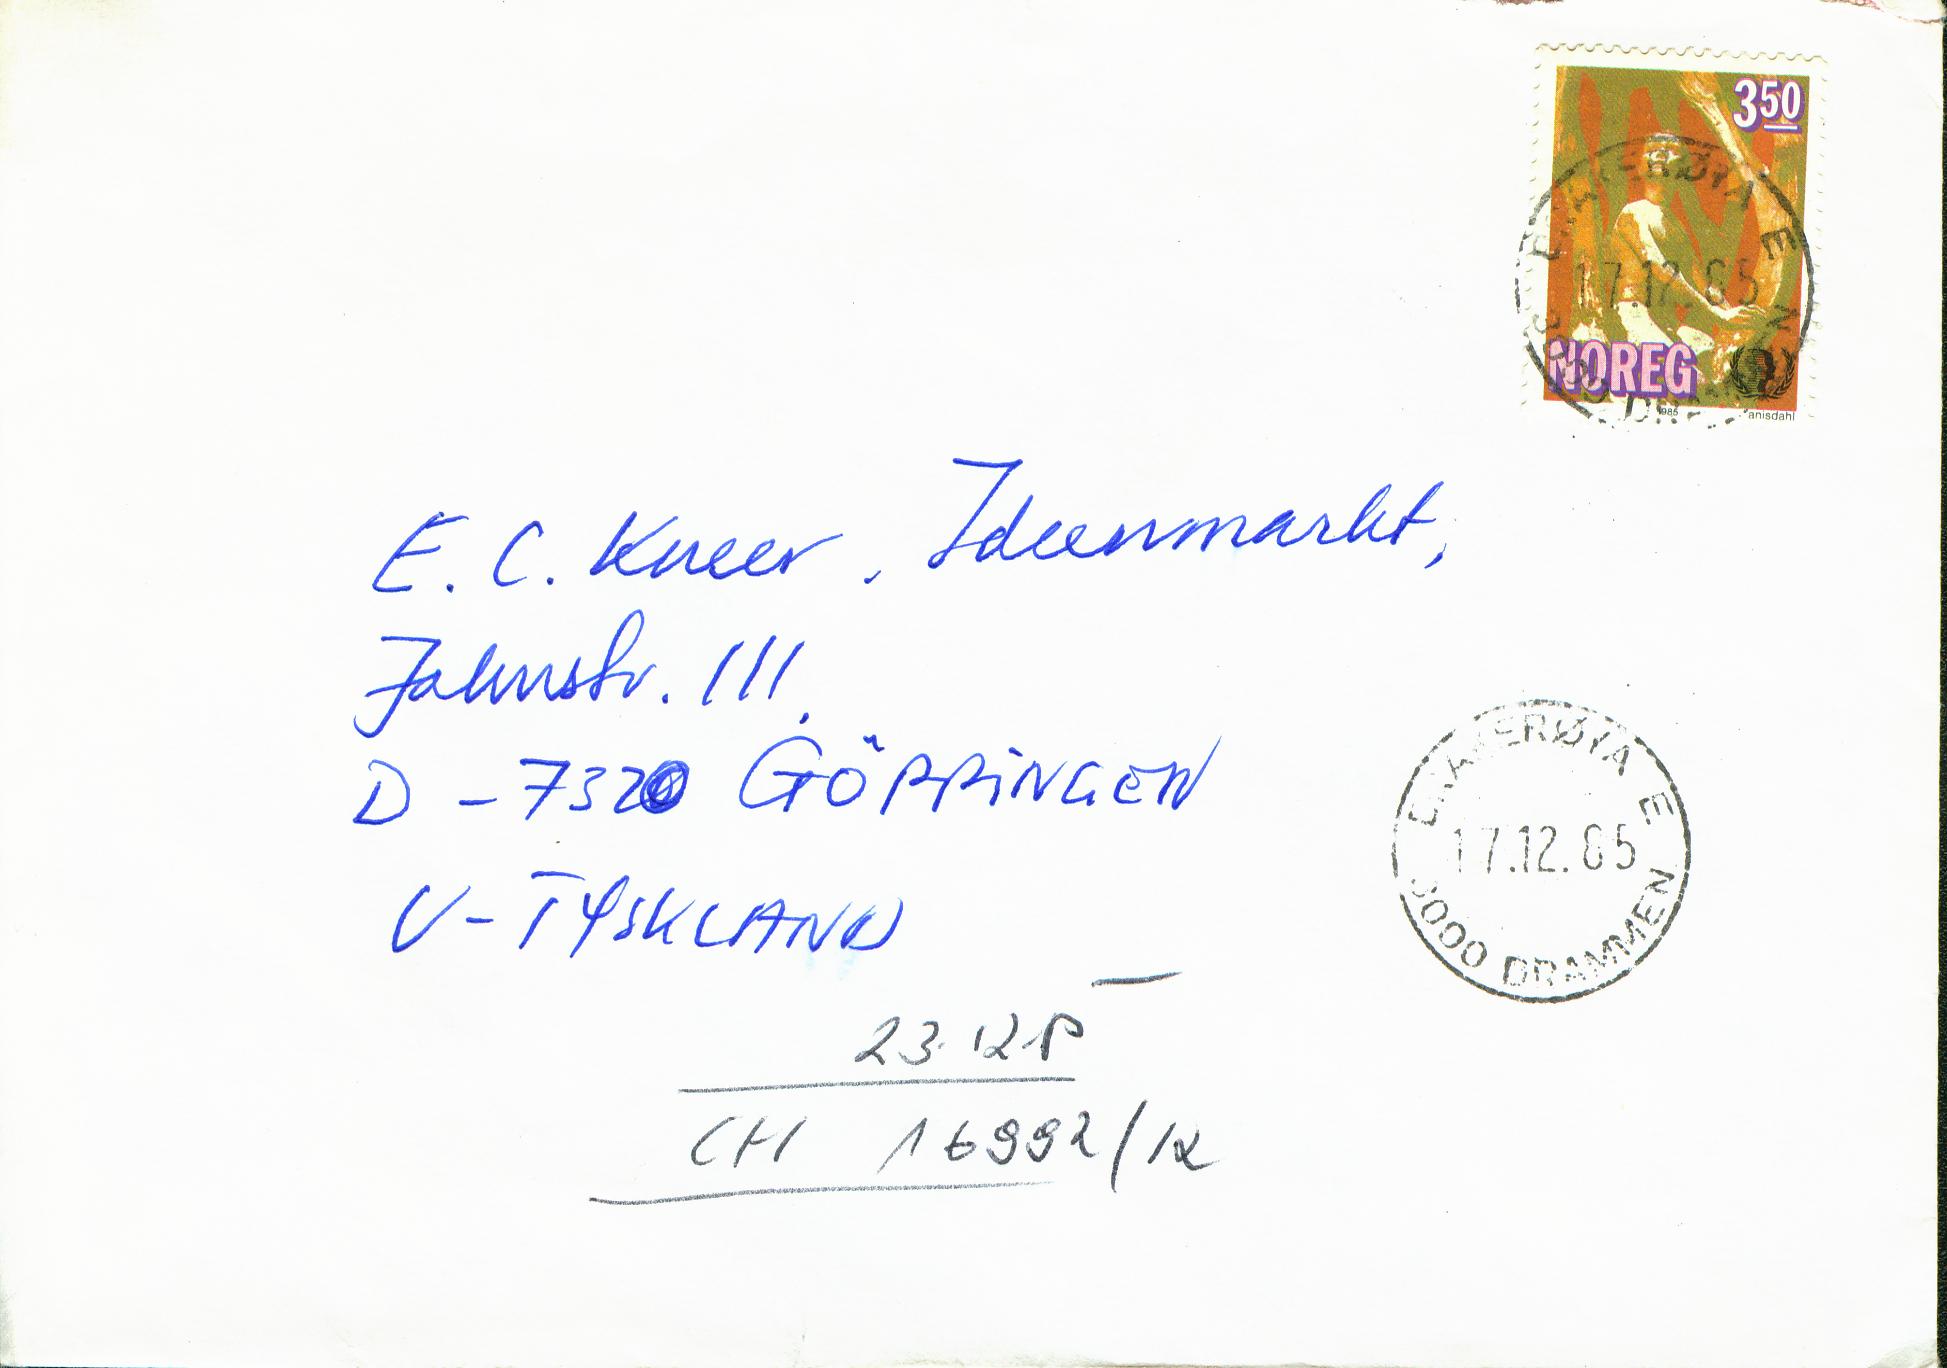 3 50
NOREG
1985
anisdahl
BRAKERØYA E
17.12.85
3000 DRAMMEN
E. C. Kneer, Ideenmarkt,
Jahnstr. 111,
D - 7320 GÖPPINGEN
V - TYSKLAND
BRAKERØYA E
17.12.85
3000 DRAMMEN
23.12
CH 16992/12